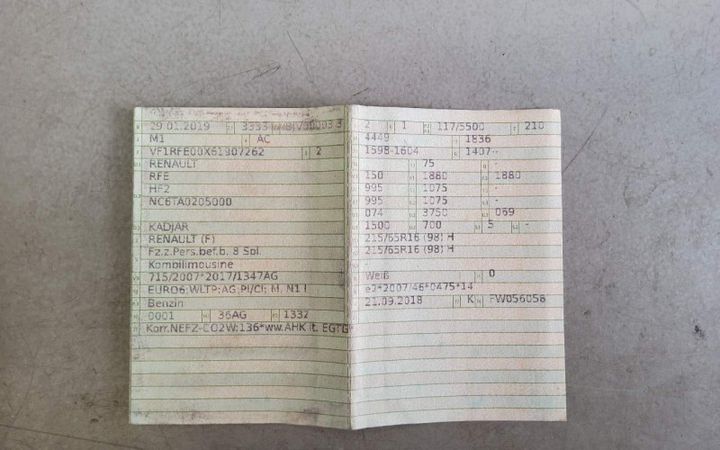 29.01.2019 3333
M1 AC
VF1RFE00X61907262 2
RENAULT
RFE
HF2
NC6TA0205000
KADJAR
RENAULT (F)
Fz.z.Pers.bef.b. 8 Spl.
Kombilimousine
715/2007*2017/1347AG
EURO6;WLTP;AG;PI/CI; M, N1 I
Benzin
0001 36AG 1332
Korr.NEFZ-CO2W:136*ww.AHK lt. EGTG*
2 1 117/5500 210
4449 1836
1598-1604 1407-
- 75 -
150 1880 1880
995 1075 -
995 1075 -
074 3750 069
1500 700 5 -
215/65R16 (98) H
215/65R16 (98) H
Weiß 0
e2*2007/46*0475*14
21.09.2018 K FW056058